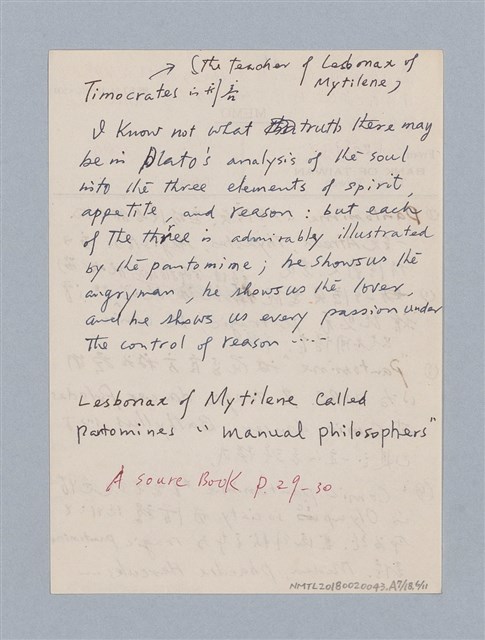 → (the teacher of Lesbonax of
Mytilene)
Timocrates is
I know not what truth there may
be in Plato's analysis of the soul
into the three elements of spirit,
appetite, and reason : but each
of the three is admirably illustrated
by the pantomime ; he shows us the
angry man, he shows us the lover,
and he shows us every passion under
the control of reason .....
Lesbonax of Mytilene called
pantomines " manual philosophers"
A soure Book P. 29-30
NMTL20180020043.